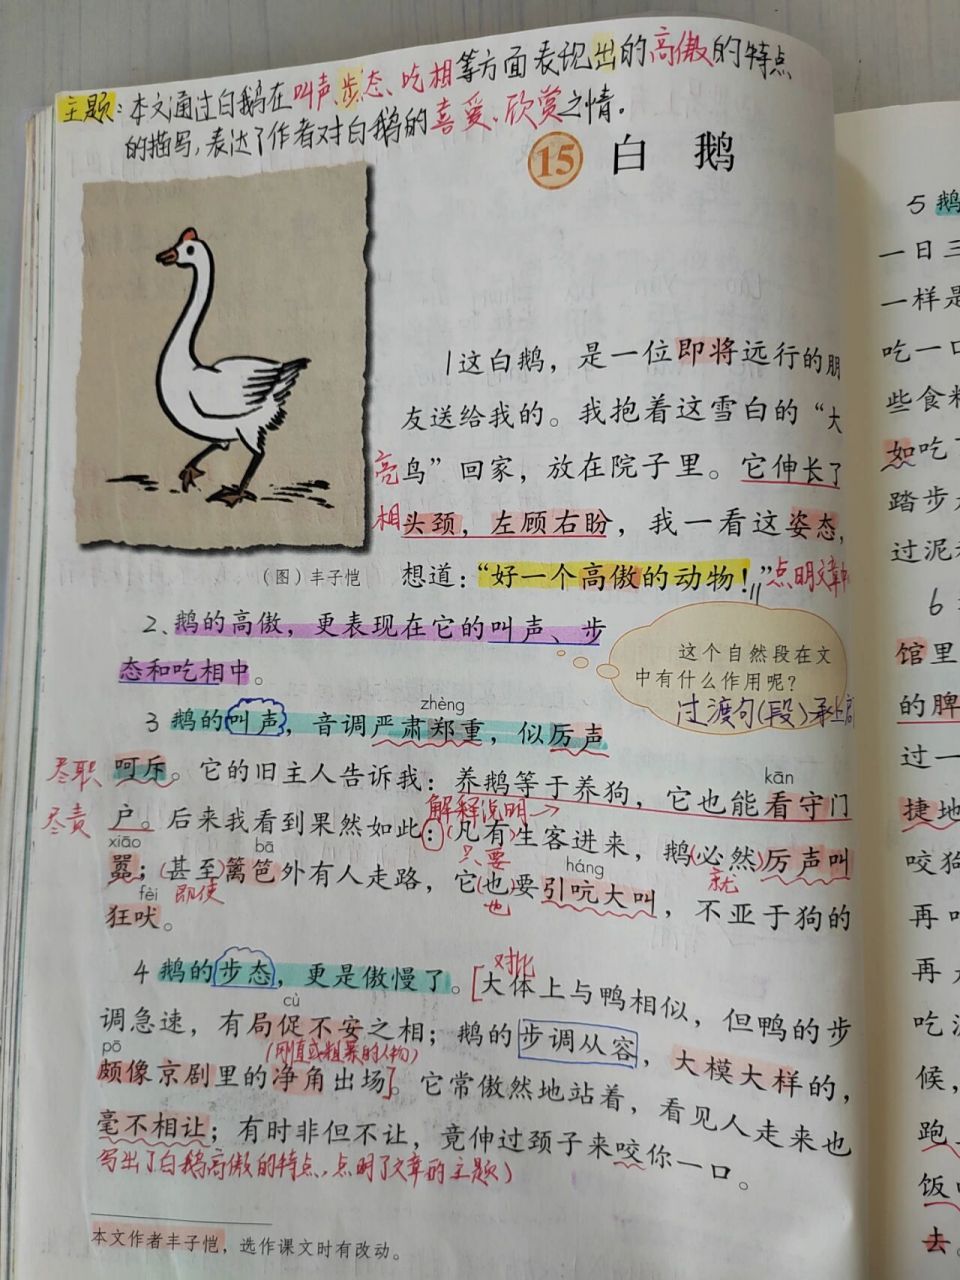 主题：本文通过白鹅在叫声、步态、吃相等方面表现出的高傲的特点
的描写，表达了作者对白鹅的喜爱、欣赏之情。
15 白 鹅
1这白鹅，是一位即将远行的朋
友送给我的。我抱着这雪白的“大
亮鸟”回家，放在院子里。它伸长了
相头颈，左顾右盼，我一看这姿态，
（图）丰子恺
想道：“好一个高傲的动物！”点明文章中
2、鹅的高傲，更表现在它的叫声、步
态和吃相中。
这个自然段在文
中有什么作用呢？
过渡句(段)承上启
zhèng
3 鹅的叫声，音调严肃郑重，似厉声
尽职
呵斥。它的旧主人告诉我：养鹅等于养狗，它也能看守门
kān
解释说明→
尽责
户。后来我看到果然如此：(凡有)生客进来，鹅(必然)厉声叫
只要
就
xiāo
bā
háng
嚣；(甚至)篱笆外有人走路，它(也)要引吭大叫，不亚于狗的
即使
也
fèi
狂吠。
对比
4 鹅的步态，更是傲慢了。[大体上与鸭相似，但鸭的步
cù
调急速，有局促不安之相；鹅的步调从容，大模大样的，
pō
(刚直或粗暴的人物)
颇像京剧里的净角出场]。它常傲然地站着，看见人走来也
毫不相让；有时非但不让，竟伸过颈子来咬你一口。
写出了白鹅高傲的特点，点明了文章的主题)
本文作者丰子恺，选作课文时有改动。
5 鹅
一日三
一样是
吃一口
些食料
如吃了
踏步
过泥
6
馆里
的脾
过一
捷地
咬狗
再吧
再
吃
候，
跑
饭
去。